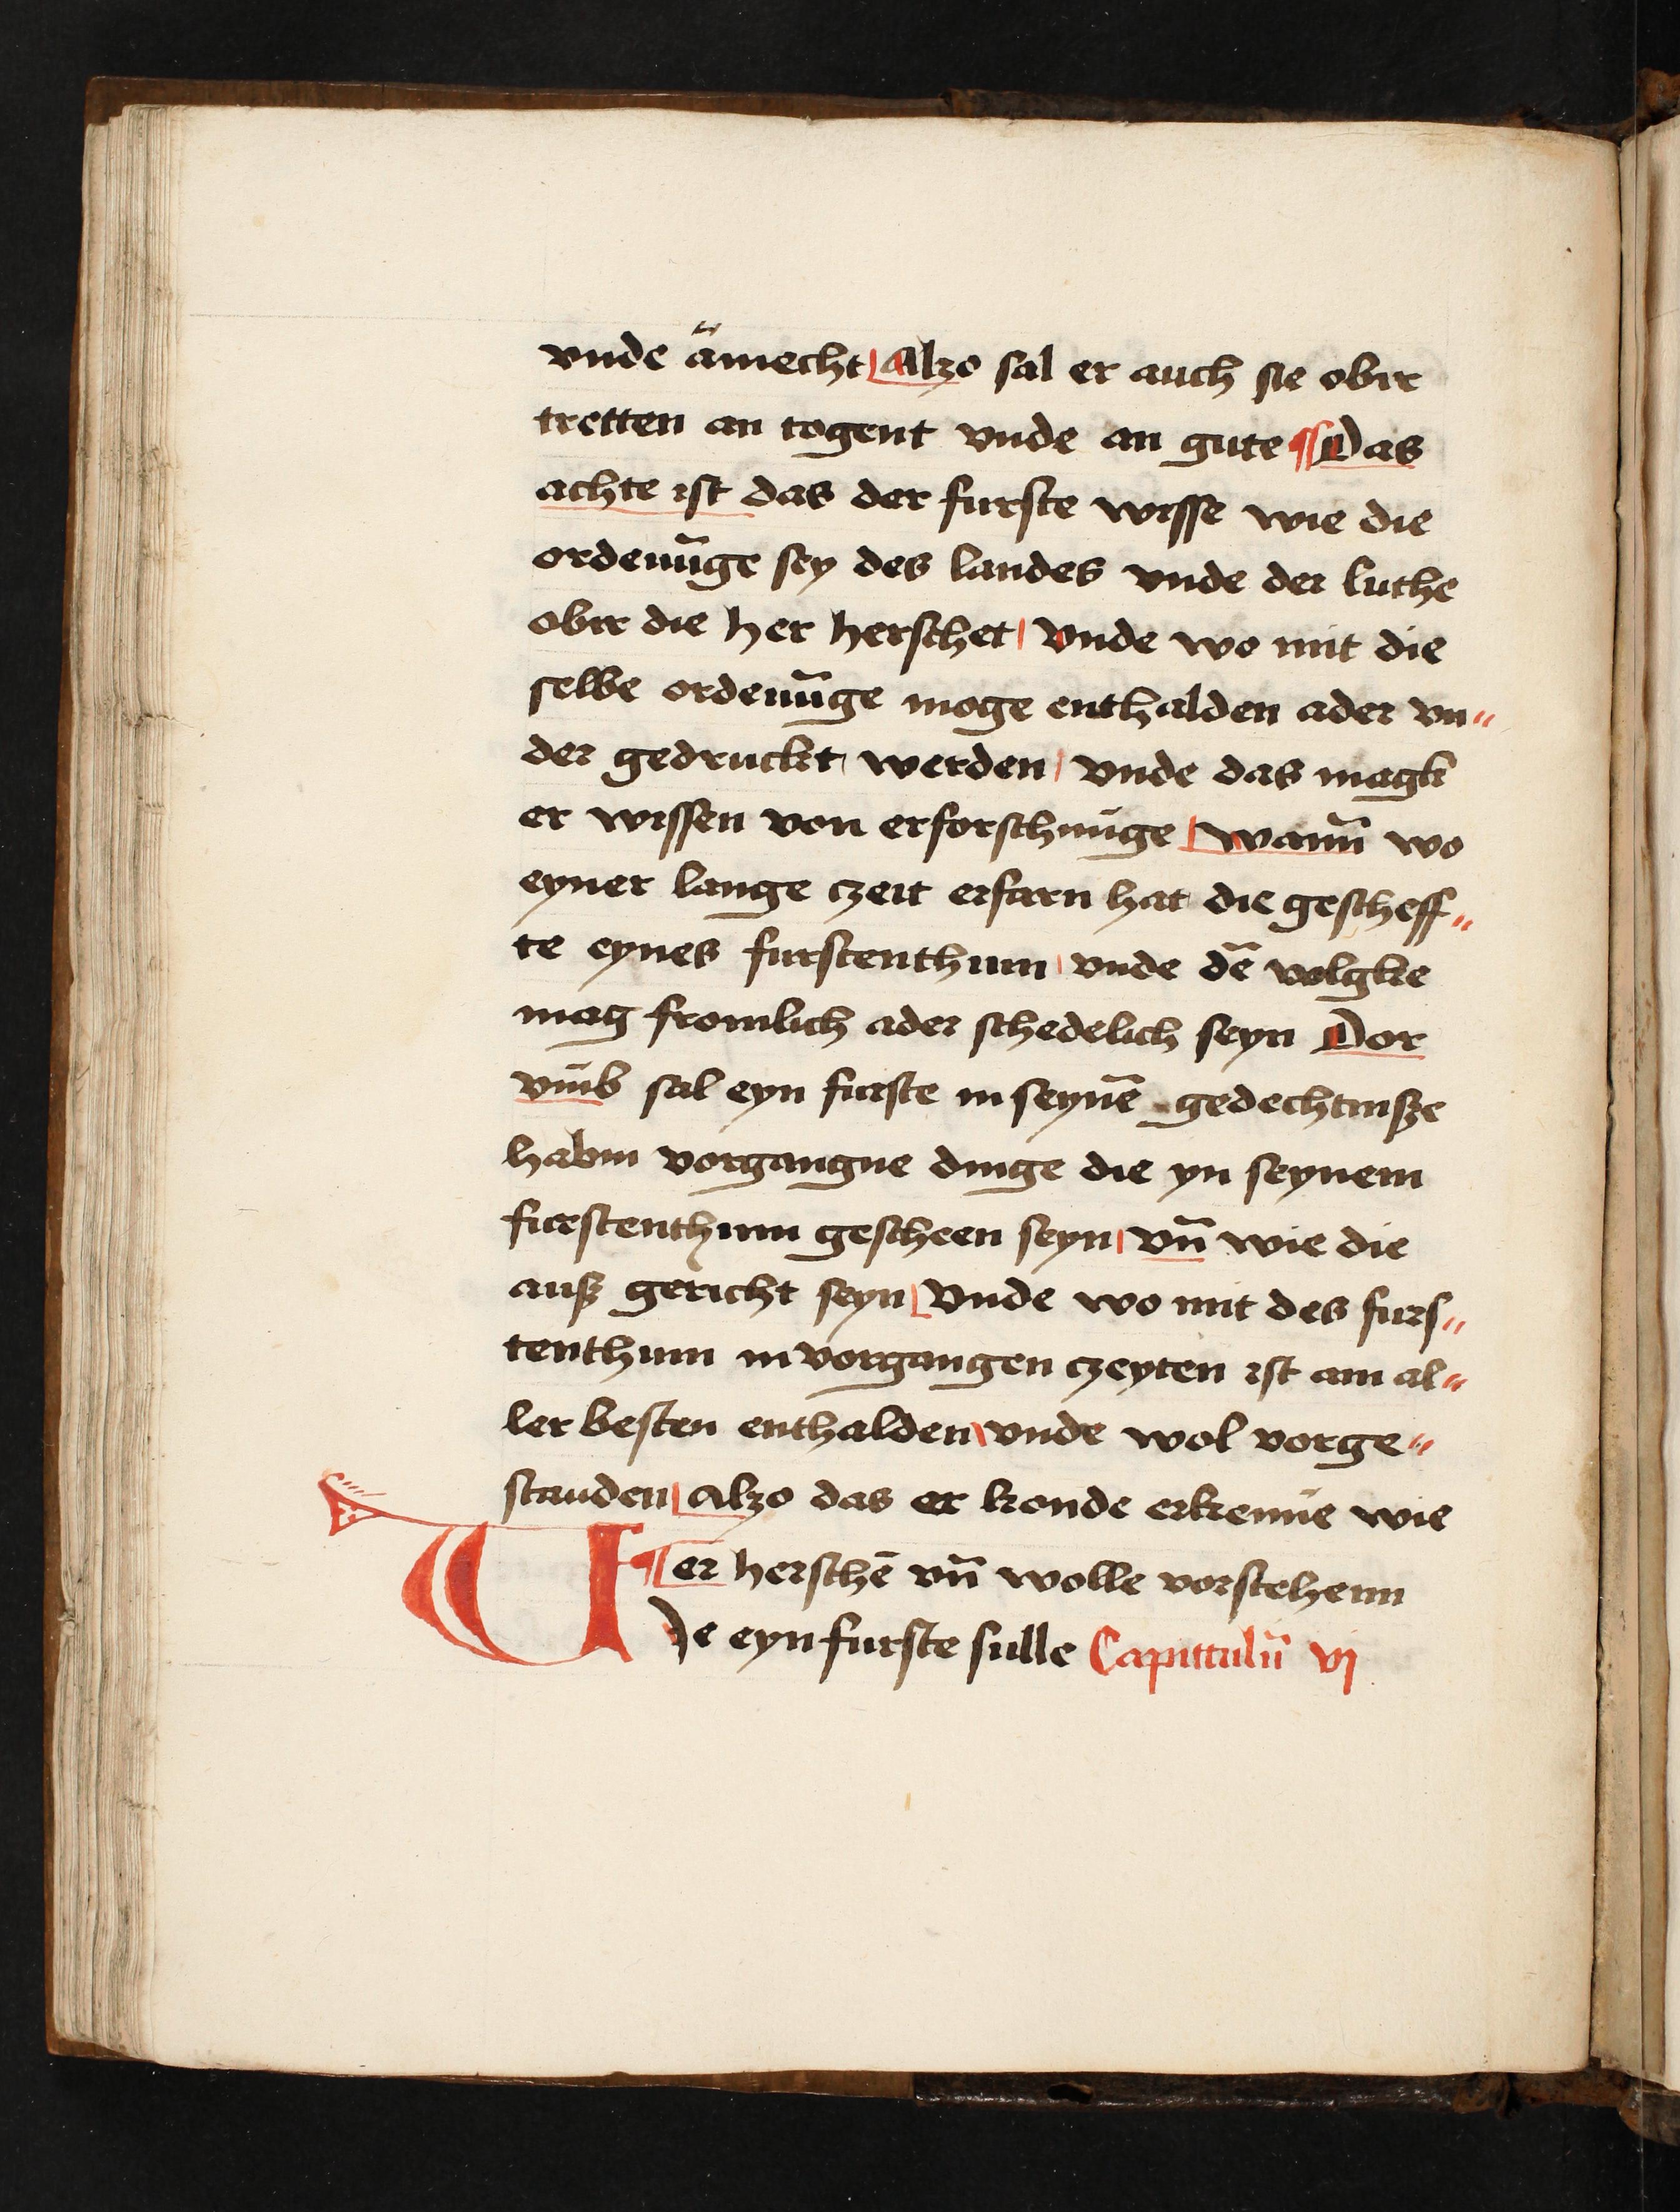 vnde ämecht Alzo sal er auch sie obir
tretten an togent vnde an gute Das
achte ist das der furste wisse wie die
ordenūge sey des landes vnde der luthe
obir die her herschet vnde wo mit die
selbe ordenūge moge enthalden ader vn"
der gedruckt werden vnde das magk
er wissen von erforschūge wann̄ wo
eyner lange czeit erfarn hat die gescheff"
te eynes furstenthum vnde dē volgke
mag fromlich ader schedelich seyn Dor
vm̄b sal eyn furste in seynē gedechtnisze
habin vorgangne dinge die yn seynem
furstenthum gescheen seyn vn̄ wie die
ausz gericht seyn Vnde wo mit des furs"
tenthum in vorgangen czeyten ist am al"
ler besten enthalden vnde wol vorge"
standen Alzo das er konde erkennē wie
er herschē vn̄ wolle vorstehenn
Wje eyn furste sulle Capittulū vj